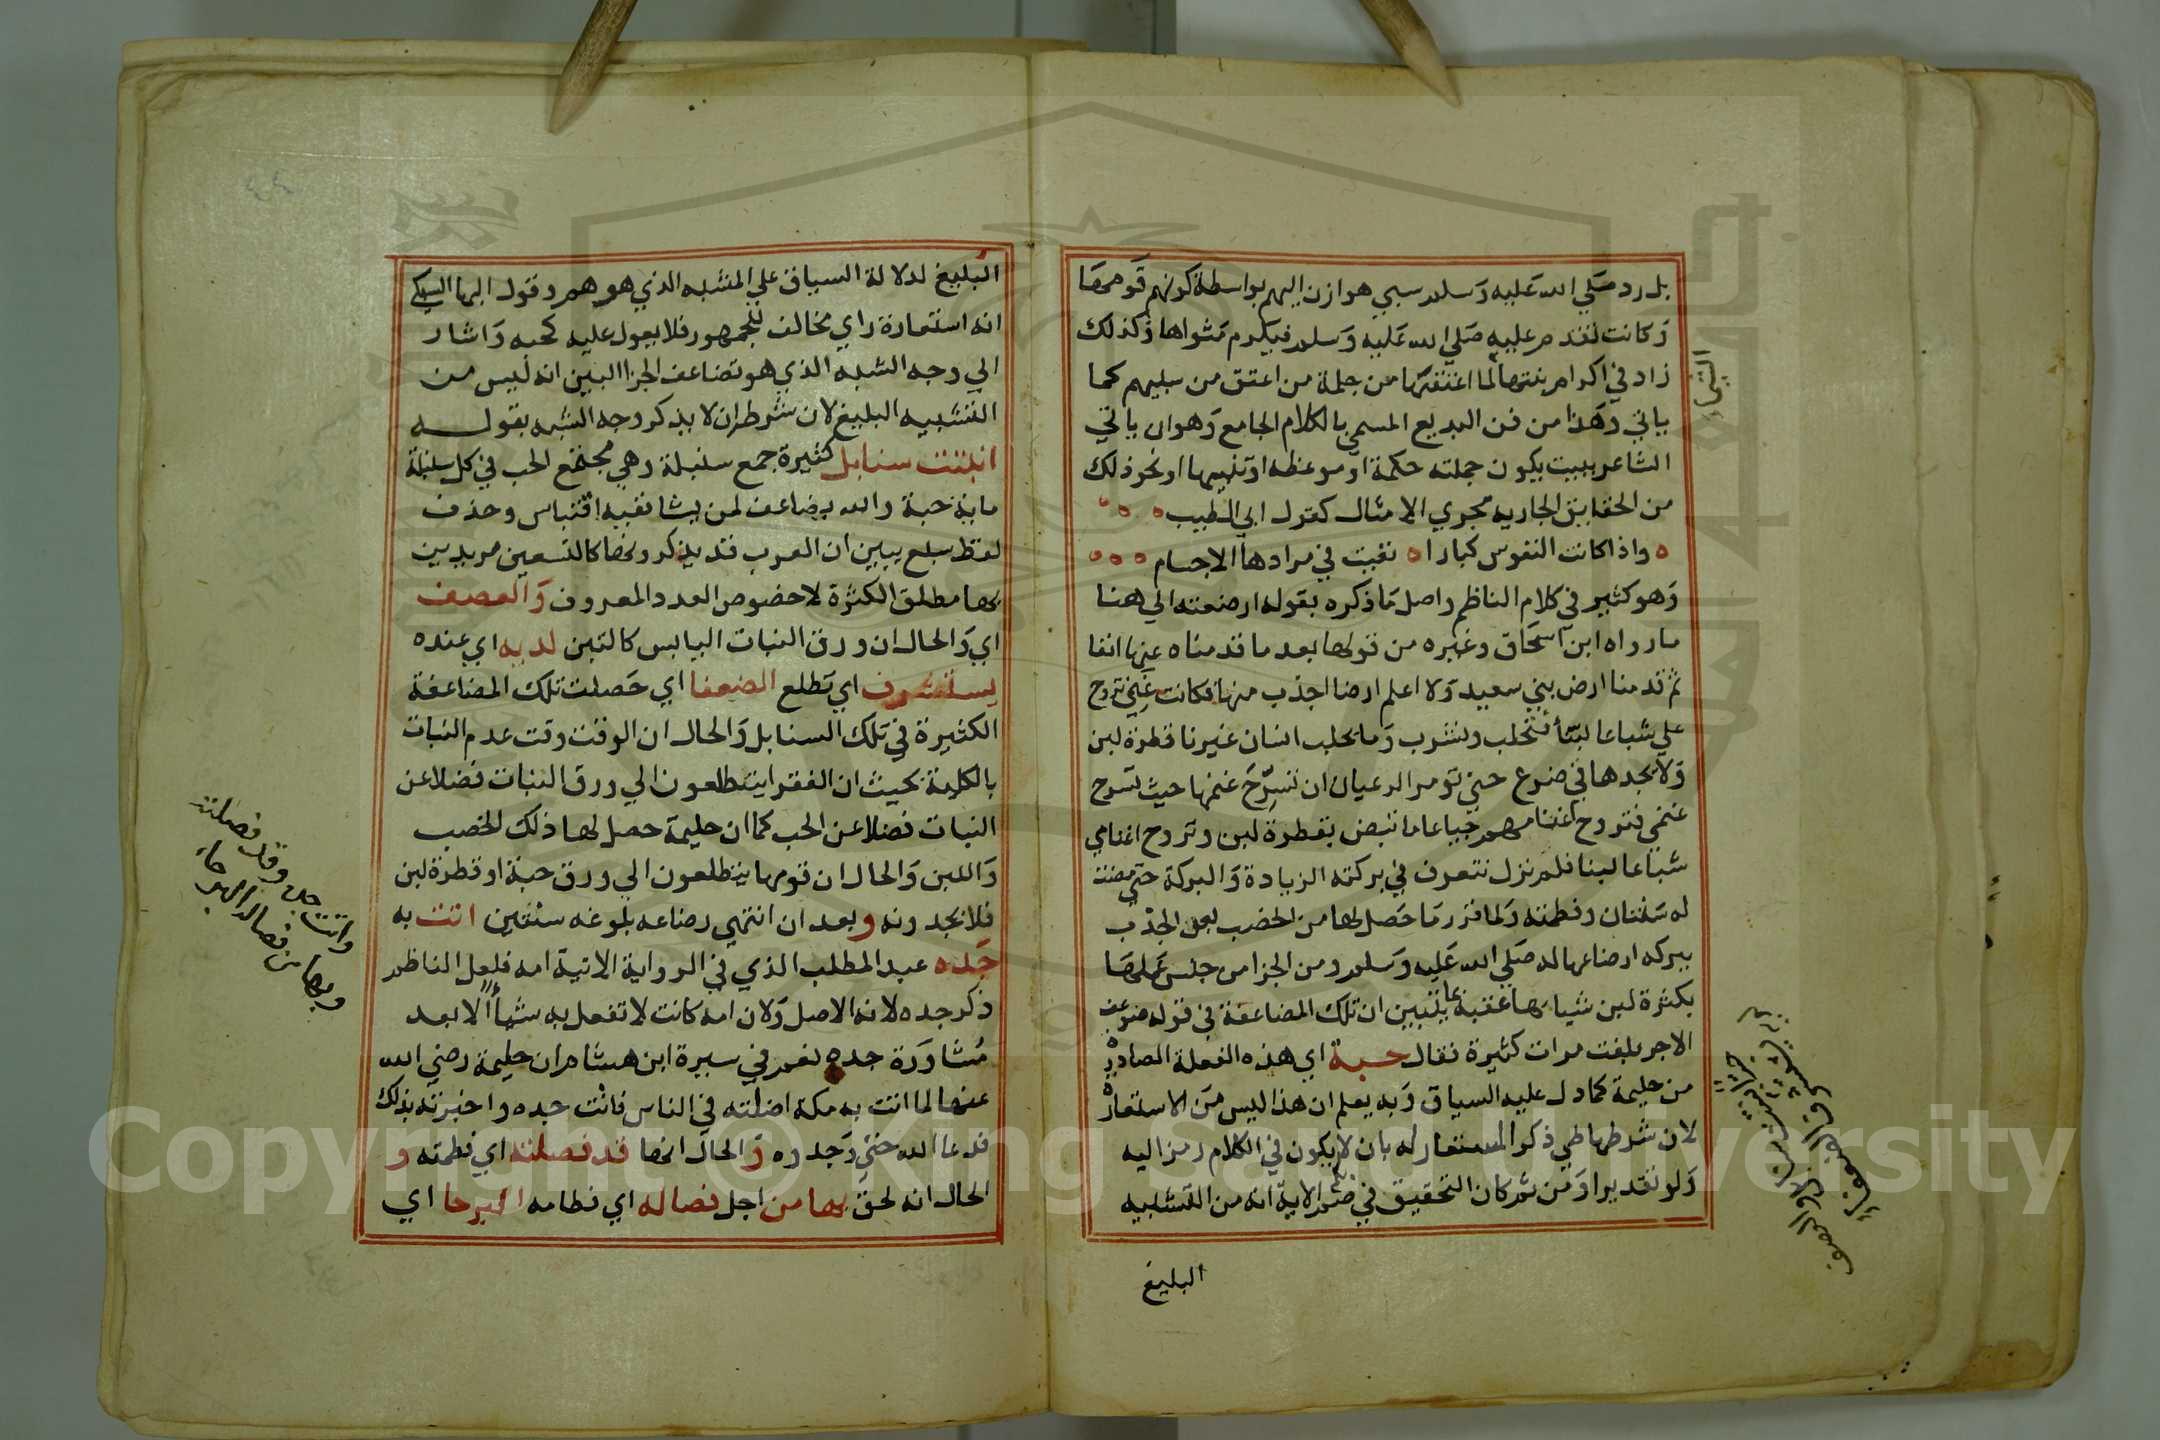 بل رد صلي الله عليه وسلم سبي هوازن اليهم بواسطة كونهم قومها
وكانت تقدم عليه صلي الله عليه وسلم فيكرم مثواها وكذلك
زاد في اكرام بنتها لما اعتقها من جملة من اعتق من سبيهم كما
ياتي وهذا من فن البديع المسمي بالكلام الجامع وهوان ياتي
الشاعر ببيت يكون جملته حكمة او موعظه او تنبيها او نحو ذلك
من الحقايق الجاريه مجري الامثال كقول ابي الطيب
واذا كانت النفوس كبارا تعبت في مرادها الاجسام
وهو كثير في كلام الناظم واصل ما ذكره بقوله ارضعته الي هنا
ما رواه ابن اسحاق وغيره من قولها بعد ما قدمناه عنها انفا
ثم قدمنا ارض بني سعيد ولا اعلم ارضا اجدب منها فكانت غنمي تروح
علي شباعا لبنا فنحلب ونشرب وما يحلب انسان غيرنا قطرة لبن
ولا يجدها في ضرع حتي تومر الرعيان ان تسرح غنمها حيث تسرح
غنمي فتروح اغنامهم جياعا ما تبض بقطرة لبن وتروح اغنامي
شباعا لبنا فلم نزل نتعرف في بركته الزيادة والبركة حتي مضت
له سنتان وفطمته ولما قرر ما حصل لها من الخصب بعد الجدب
ببركه ارضاعها له صلي الله عليه وسلم ومن الجزا من جنس عملها
بكثرة لبن شياهها عقبه بما يتبين ان تلك المضاعفة في قوله ضوعف
الاجر بلغت مرات كثيرة فقال حبة اي هذه الفعلة الصادرة
من حليمة كما دل عليه السياق وبه يعلم ان هذا ليس من الاستعارة
لان شرطها طي ذكر المستعار له بان لا يكون في الكلام رمز اليه
ولو تقديرا ومن ثم كان التحقيق في الاية انه من التشبيه
البليغ
البليغ لدلالة السياق علي المشبه الذي هو هم وقول البها السبكي
انه استعارة راي مخالف للجمهور فلا يعول عليه كحبه واشار
الي وجه الشبه الذي هو تضاعف الجزا البين انه ليس من
التشبيه البليغ لان شرطه ان لا يذكر وجه الشبه بقوله
انبتت سنابل كثيرة جمع سنبلة وهي مجتمع الحب في كل سنبلة
ماية حبة والله يضاعف لمن يشا ففيه اقتباس وحذف
لفظ سبع يبين ان العرب قد يذكرونها كالتسعين مريدين
بها مطلق الكثرة لا خصوص العدد المعروف والعصف
اي والحال ان ورق النبات اليابس كالتبن لديه اي عنده
يستشرف اي يتطلع الضعفا اي حصلت تلك المضاعفة
الكثيرة في تلك السنابل والحال ان الوقت وقت عدم النبات
بالكلية بحيث ان الفقرا يتطلعون الي ورق النبات فضلا عن
النبات فضلا عن الحب كما ان حليمة حصل لها ذلك الخصب
واللبن والحال ان قومها يتطلعون الي ورق حبة او قطرة لبن
فلا يجدونه وبعد ان انتهي رضاعه بلوغه سنتين اتت به
جده عبد المطلب الذي في الرواية الاتية امه فلعل الناظم
ذكر جده لانه الاصل ولان امه كانت لا تفعل به شيأ الا بعد
مشاورة جده نعم في سيرة ابن هشام ان حليمة رضي الله
عنها لما اتت به مكة اضلته في الناس فاتت جده واخبرته بذلك
فدعا الله حتي وجده والحال انها قد فصلته اي فطمته و
الحال انه لحق بها من اجل فصاله اي فطامه البرحا اي
واتت جده وقد فصلته
وبها من فصاله البرحاء